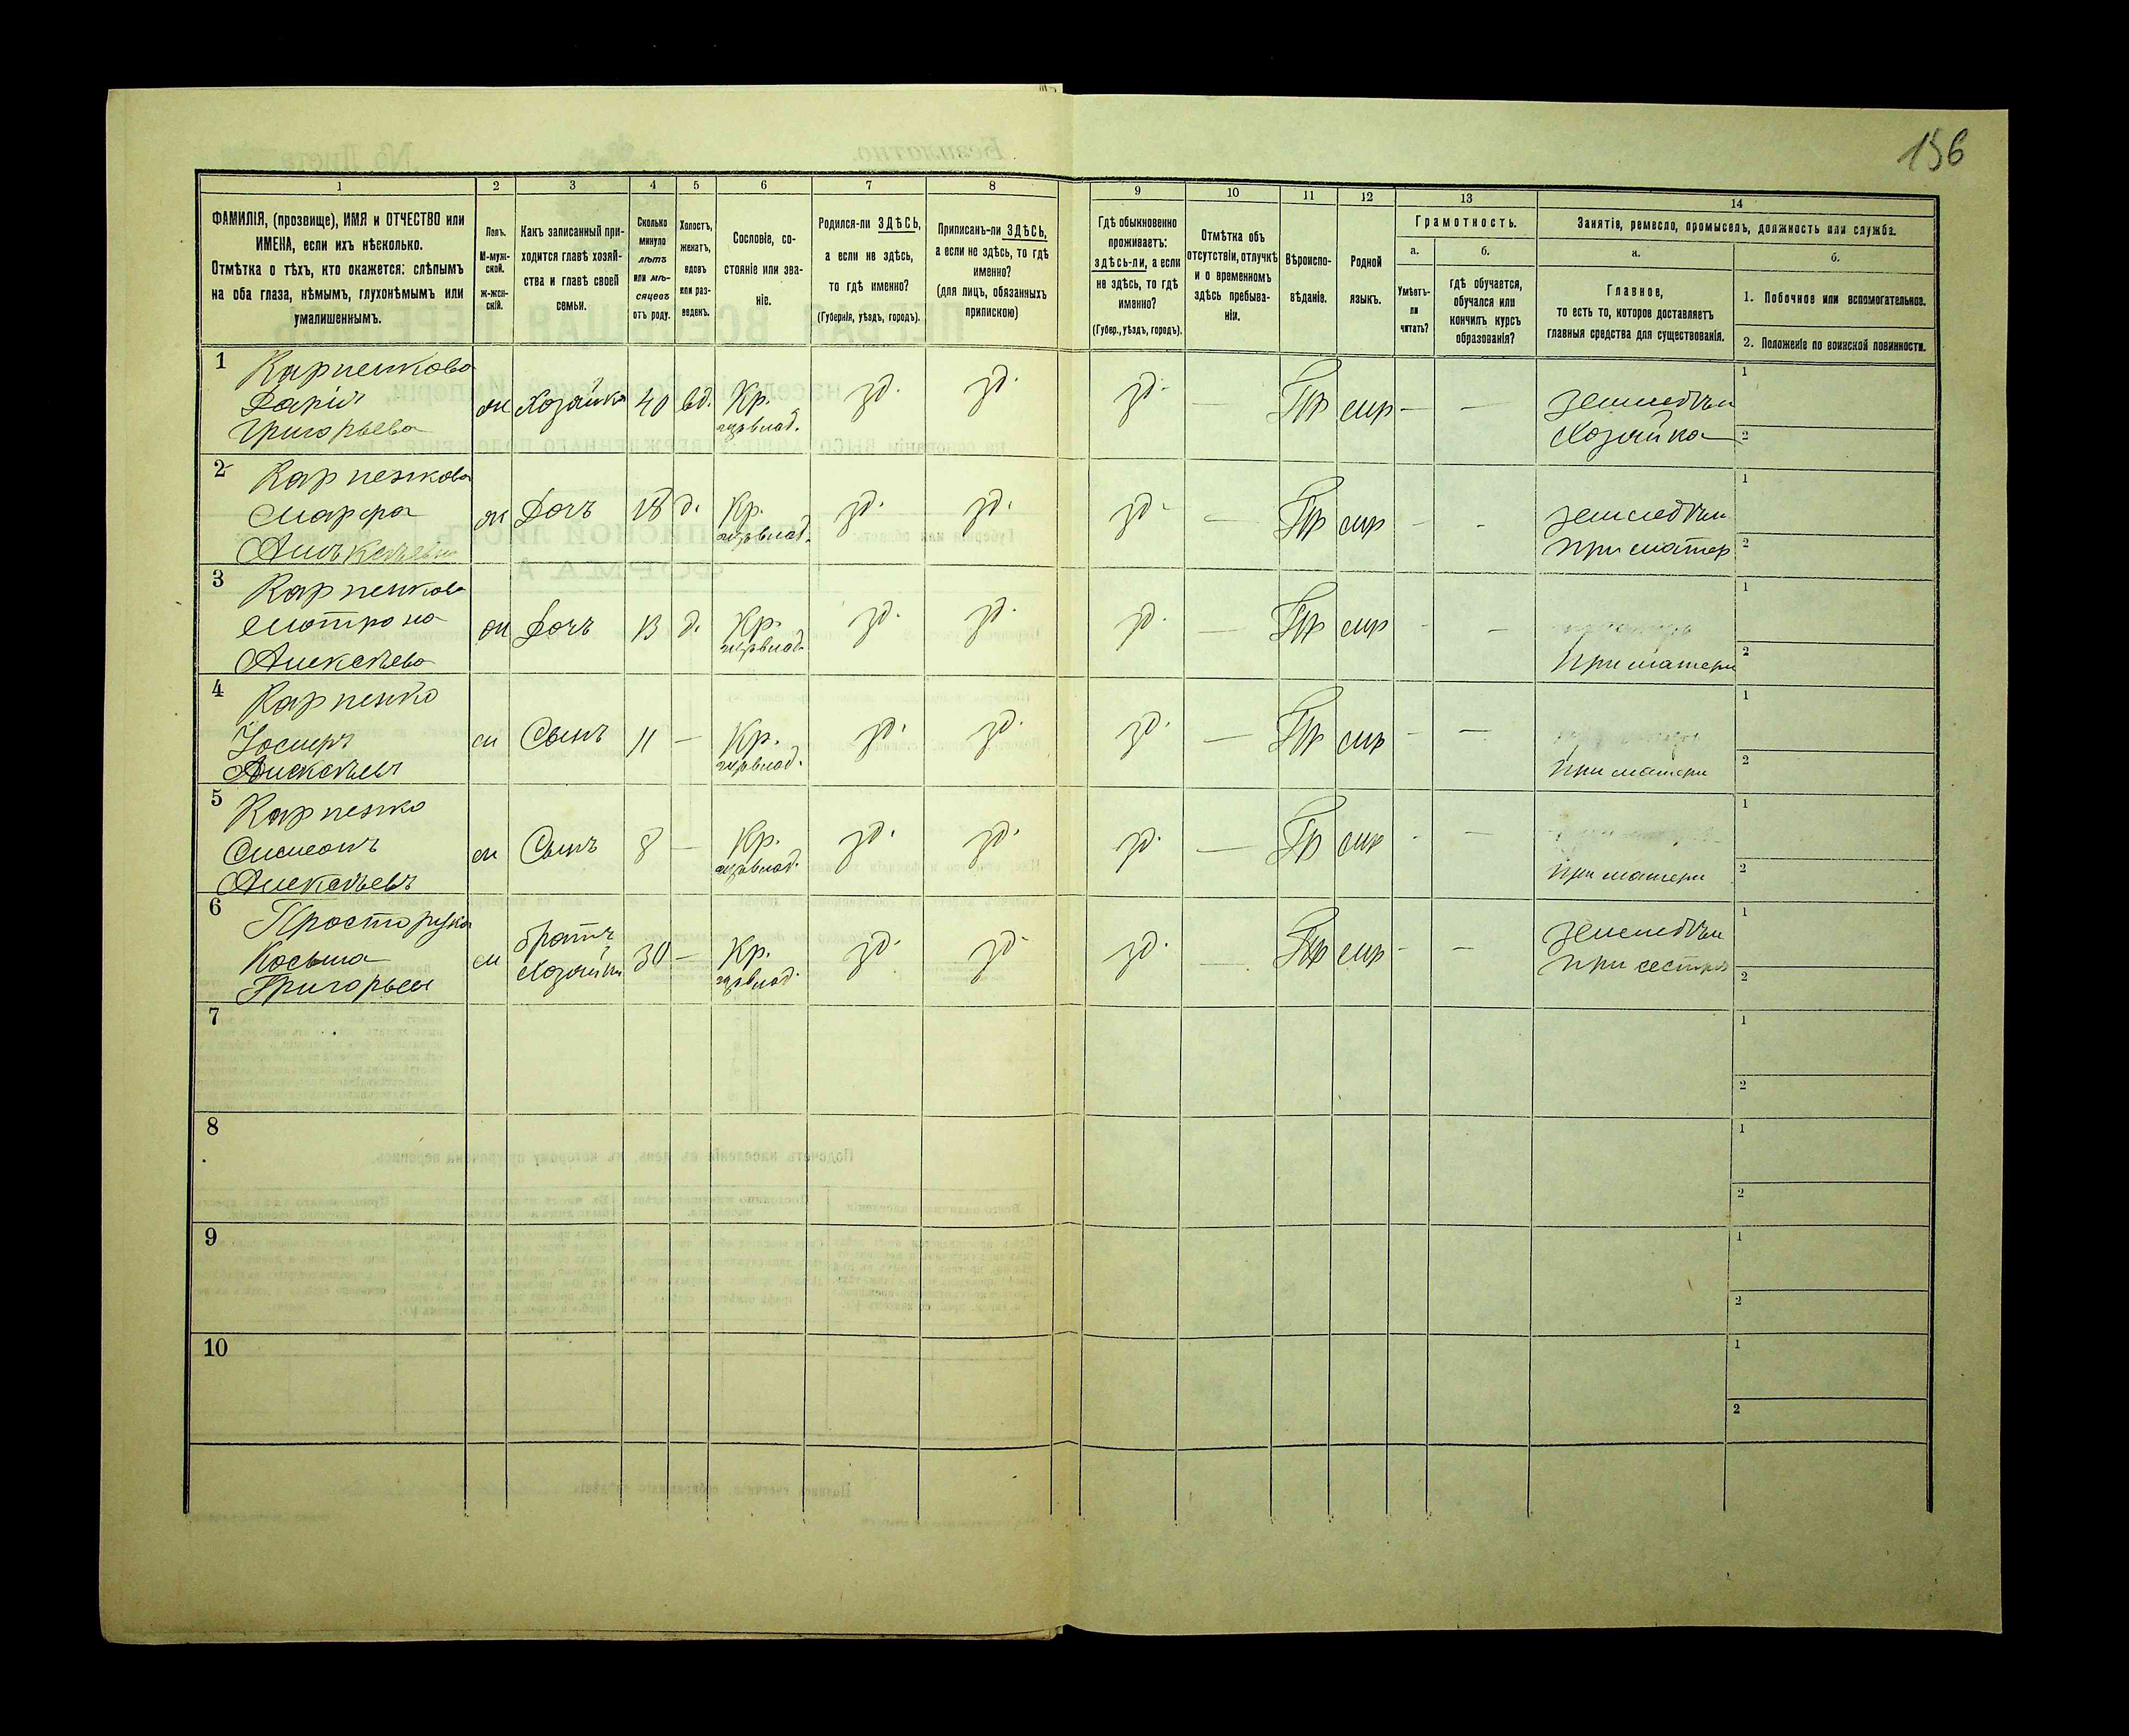 156
1 2 3 4 5 6 7 8 9 10 11 12 13 14
ФАМИЛІЯ, (прозвище), ИМЯ и ОТЧЕСТВО или
ИМЕНА, если ихъ нѣсколько.
Отмѣтка о тѣхъ, кто окажется: слѣпымъ
на оба глаза, нѣмымъ, глухонѣмымъ или
умалишеннымъ.
Полъ.
М-муж-
ской.
Ж-жен-
скій.
Какъ записанный при-
ходится главѣ хозяй-
ства и главѣ своей
семьи.
Сколько
минуло
лѣтъ
или мѣ-
сяцевъ
отъ роду.
Холостъ,
женатъ,
вдовъ
или раз-
веденъ.
Сословіе, со-
стояніе или зва-
ніе.
Родился-ли ЗДѢСЬ,
а если не здѣсь,
то гдѣ именно?
(Губернія, уѣздъ, городъ).
Приписанъ-ли ЗДѢСЬ,
а если не здѣсь, то гдѣ
именно?
(для лицъ, обязанныхъ
припискою)
Гдѣ обыкновенно
проживаетъ:
здѣсь-ли, а если
не здѣсь, то гдѣ
именно?
(Губер., уѣздъ, городъ).
Отмѣтка объ
отсутствіи, отлучкѣ
и о временномъ
здѣсь пребыва-
ніи.
Вѣроиспо-
вѣданіе.
Родной
языкъ.
Грамотность.
а.
Умѣетъ-
ли
читать?
б.
гдѣ обучается,
обучался или
кончилъ курсъ
образованія?
Занятіе, ремесло, промыселъ, должность или служба.
а.
Главное,
то есть то, которое доставляетъ
главныя средства для существованія.
б.
1. Побочное или вспомогательное.
2. Положеніе по воинской повинности.
1 Карпенкова
Дарія
Григорьева
ж Хозяйка 40 вд. Кр. зд. зд. зд. — Пр мр — —
Хозяйка
1
2
2 Карпенкова
Марфа
ж Дочь 18 д. Кр. зд. зд. зд. — Пр мр - -
при матер
1
2
3 Карпенкова
Мотрона
Алексѣева
ж Дочь 13 д. Кр. зд. зд. зд. — Пр мр - —
при матери
1
2
4 Карпенко
Іосифъ
Алексѣевъ
м Сынъ 11 — Кр. зд. зд. зд. — Пр мр - —
при матери
1
2
5 Карпенко
Симеонъ
Алексѣевъ
м Сынъ 8 — Кр. зд. зд. зд. — Пр мр - —
при матери
1
2
6
Косьма
Григорьев
м братъ
Хозяйки 30 — Кр. зд. зд. зд. — Пр мр - —
при сестрѣ
1
2
7
1
2
8
1
2
9
1
2
10
1
2